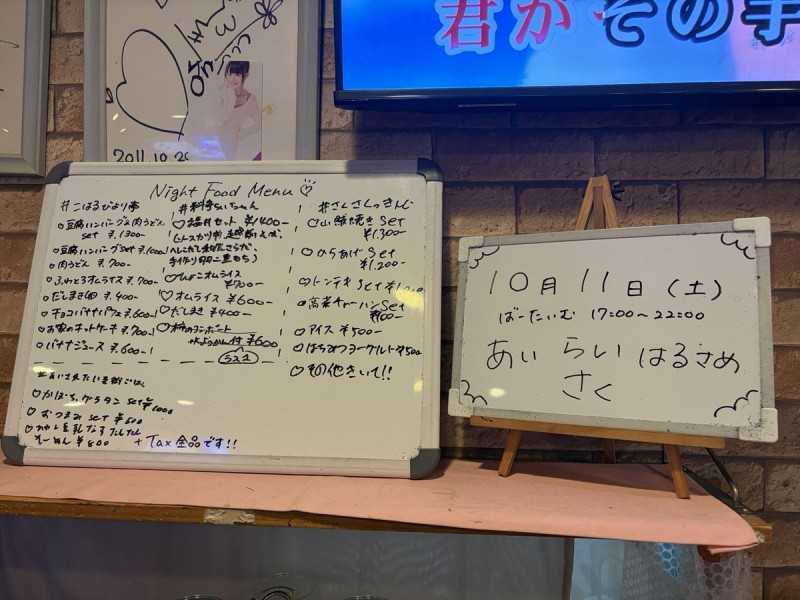 君がその手
2011.10.29
Night Food Menu ♡
#こはるびより亭
○豆腐ハンバーグ&肉うどん
set ¥.1300ー
○豆腐ハンバーグset ¥.1000ー
○肉うどん ¥.700ー
○ふわとろオムライス ¥.700ー
○だしまき卵 ¥.400ー
○チョコバナナパフェ ¥.600ー
○お家のホットケーキ ¥.700ー
○バナナジュース ¥.600ー
#料亭らいちゃん
♡福井セット ¥1400ー
手作り
♡ひよこオムライス
¥700ー
♡オムライス ¥600ー
♡だしまき ¥400ー
♡柿のコンポート
付 ¥600
ラスユ
#さくさくっきんぐ
♡山賊焼き set
¥1.300ー
♡からあげ set
¥1.200ー
♡トンテキ set
♡高菜チャーハン set
♡アイス ¥500ー
♡はちみつヨーグルト ¥500
♡その他きいて!!
♡かぼちゃグラタン set ¥1000
♡おつまみ set ¥500
そーめん ¥800
+Tax 全品です!!
10月 11日 (土)
ばーたいむ 17:00〜22:00
あい らい はるさめ
さく